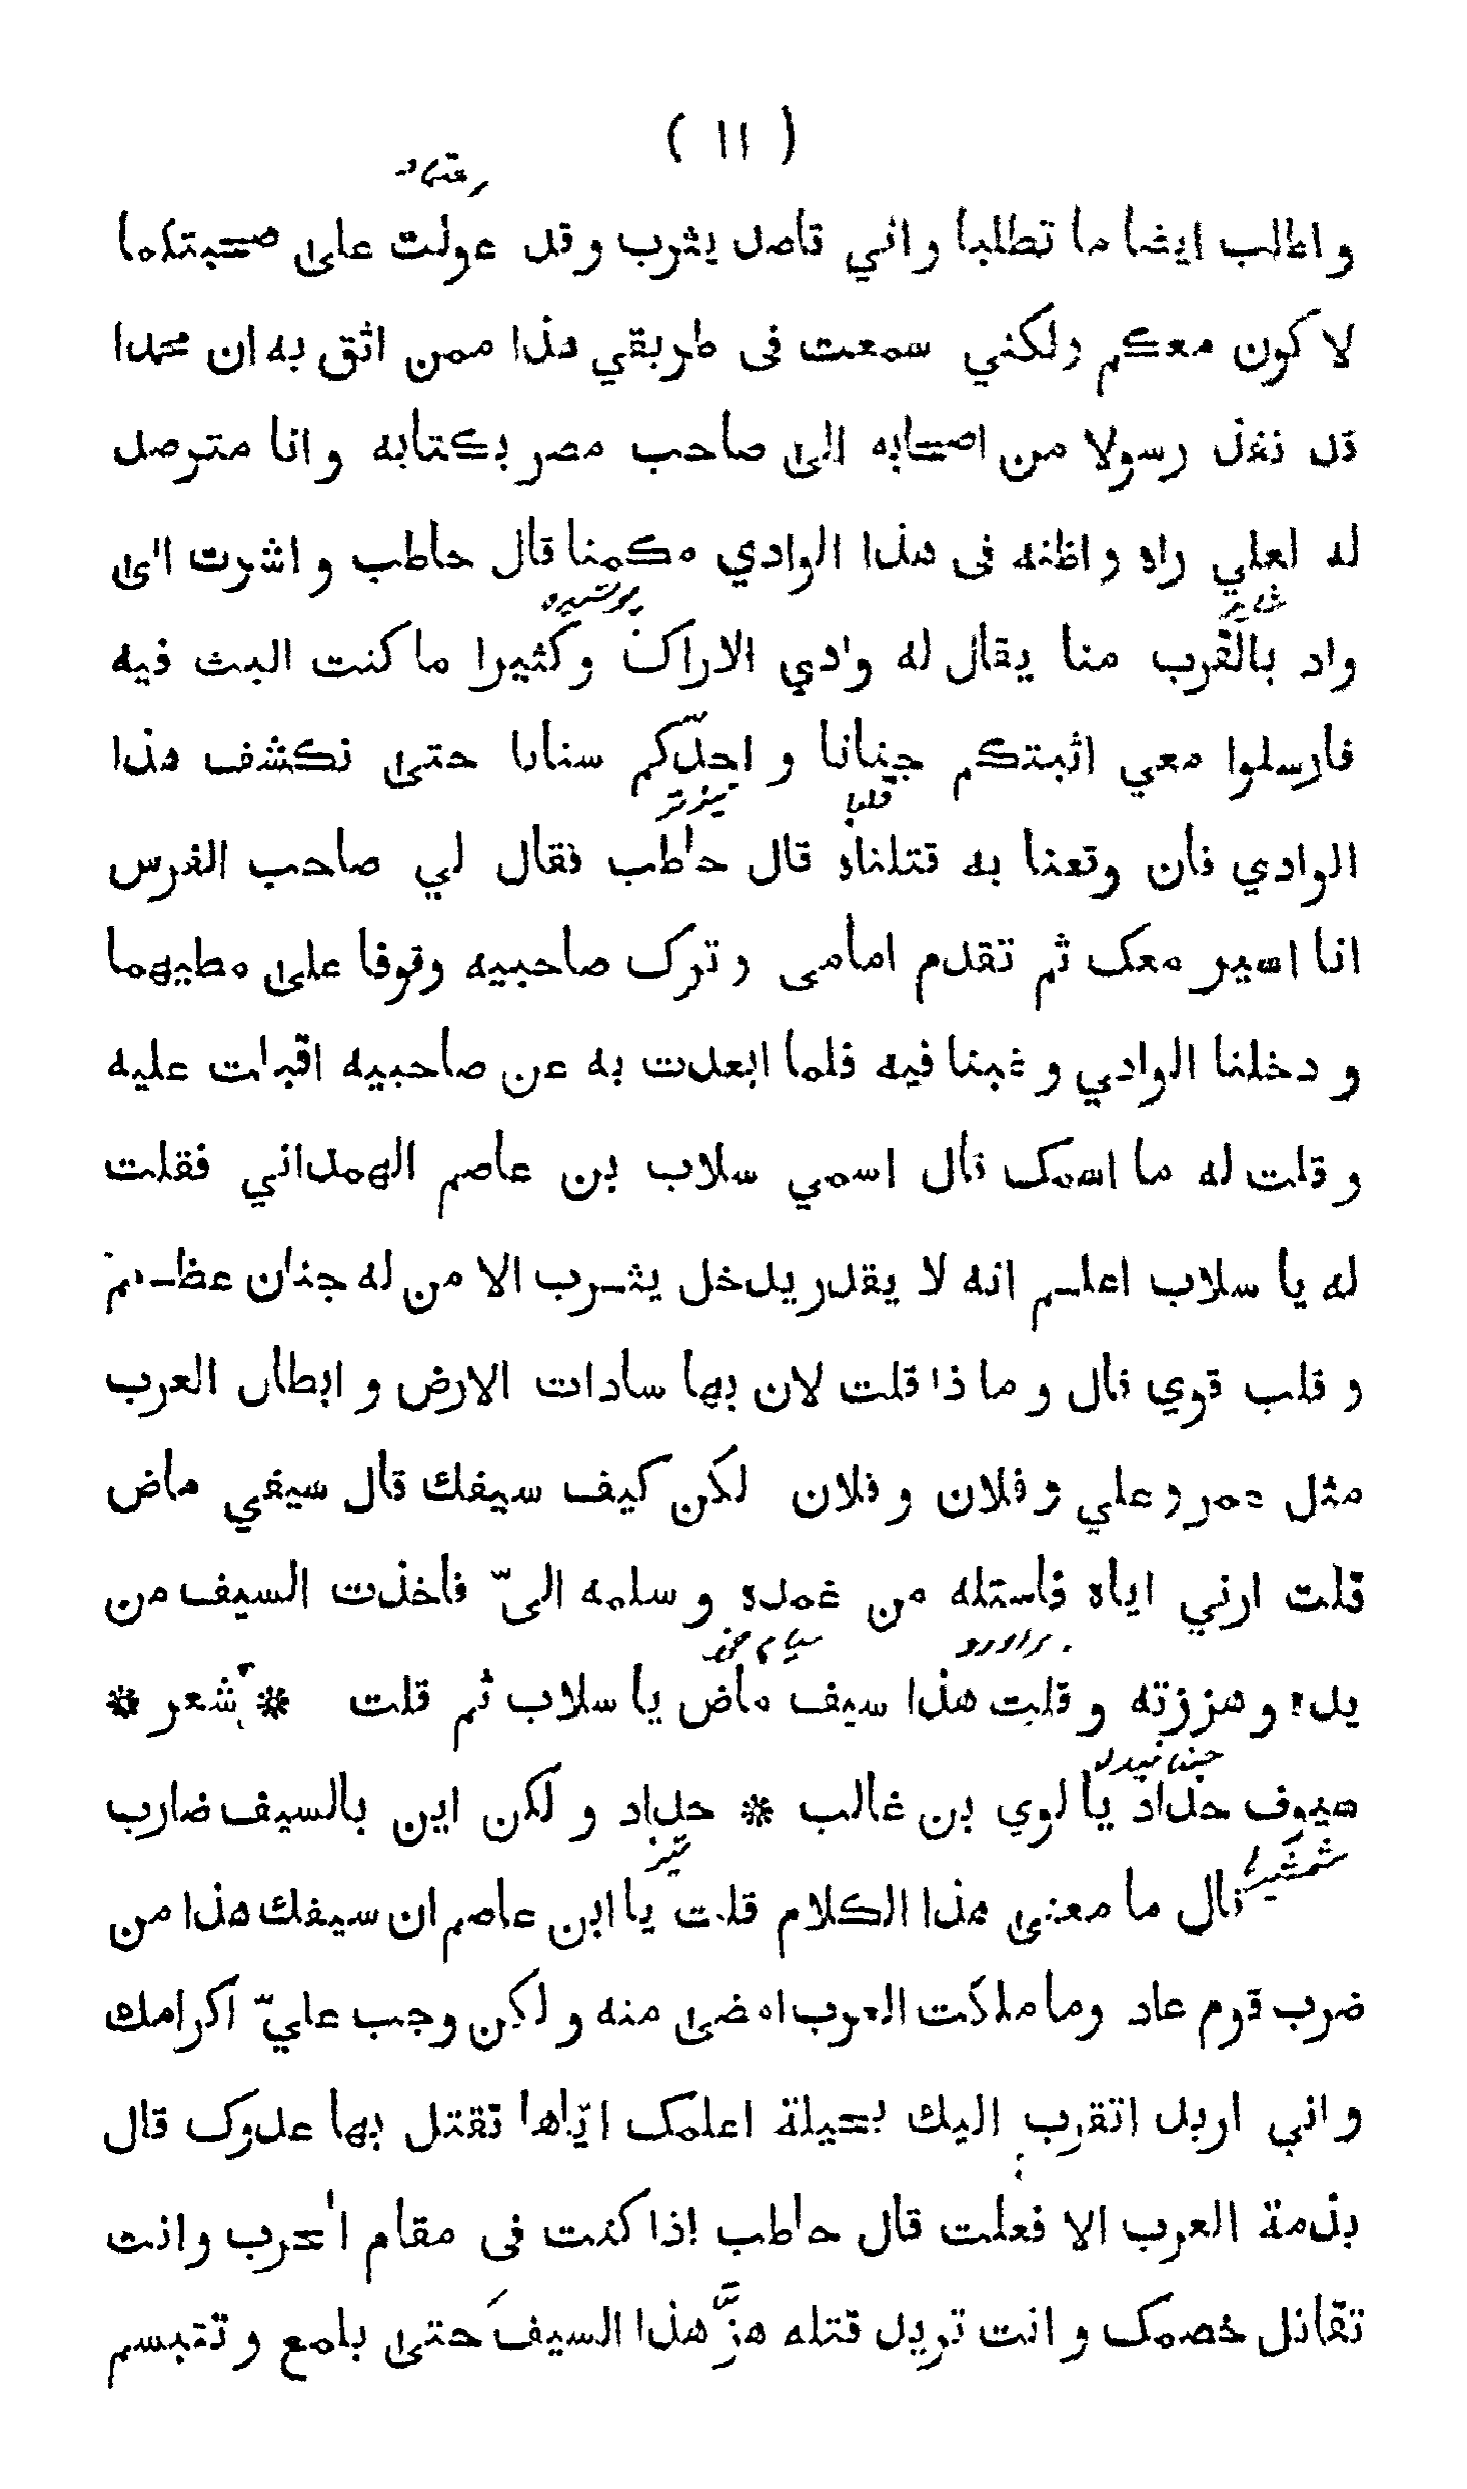 ( ١١ )
و اطلب ايضا ما تطلبا و اني قاصد يثرب و قد عولت على صحبتكما
لا كون معكم ولكني سمعت فى طريقي هذا ممن اثق به ان محمدا
قد نفذ رسولا من اصحابه الى صاحب مصر بكتابه و انا مترصد
له لعلي راه و اظنه فى هذا الوادي مكمنا قال حاطب و اشرت الى
پوشیده
شاید
واد بالقرب منا يقال له وادي الاراك وكثيرا ما كنت البث فيه
فارسلوا معي اثبتكم جنانا و احدّكم سنانا حتى نكشف هذا
قلبا
تیزتر
الوادي فان وقعنا به قتلناه قال حاطب فقال لي صاحب الفرس
انا اسير معك ثم تقدم امامى و ترك صاحبيه وقوفا على مطيهما
و دخلنا الوادي و غبنا فيه فلما ابعدت به عن صاحبيه اقبلت عليه
و قلت له ما اسمك قال اسمي سلاب بن عاصم الهمداني فقلت
له يا سلاب اعلم انه لا يقدر يدخل يثرب الا من له جنان عظيم
و قلب قوي قال و ما ذا قلت لان بها سادات الارض و ابطال العرب
مثل عمر و علي و فلان و فلان لكن كيف سيفك قال سيفي ماض
قلت ارني اياه فاستله من غمده و سلمه الىّ فاخذت السيف من
يده و هززته و قلت هذا سيف ماض يا سلاب ثم قلت * شعر *
جنبانیدن
سيوف حداد يا لوي بن غالب * حداد و لكن اين بالسيف ضارب
تیز
قال ما معنى هذا الكلام قلت يا ابن عاصم ان سيفك هذا من
ضرب قوم عاد وما ملكت العرب امضى منه و لكن وجب عليّ اكرامك
و اني اريد اتقرب اليك بحيلة اعلمك ايّاها تقتل بها عدوك قال
بذمة العرب الا فعلت قال حاطب اذا كنت فى مقام الحرب وانت
تقاتل خصمك و انت تريد قتله هزّ هذا السيف حتى يلمع و تتبسم